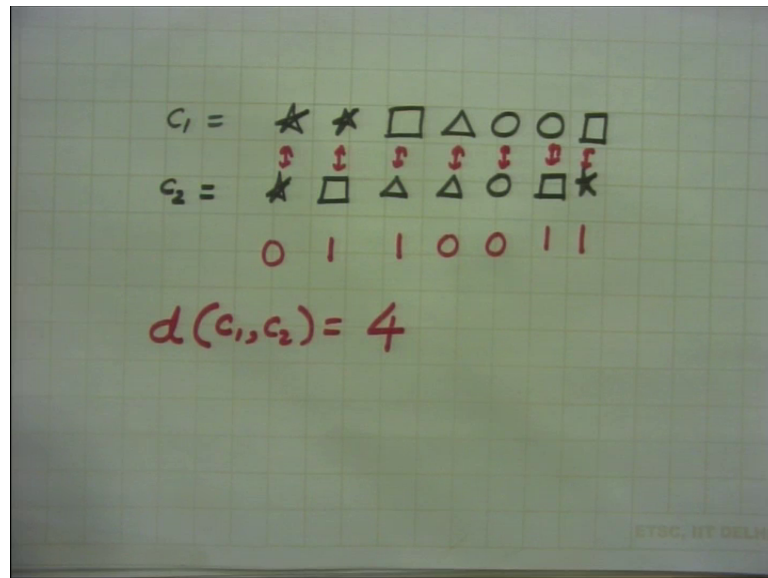 C₁ = ☆ ☆ □ △ ○ ○ □
C₂ = ☆ □ △ △ ○ □ ☆
0 1 1 0 0 1 1
d(C₁, C₂) = 4
ETSC, IIT DELH